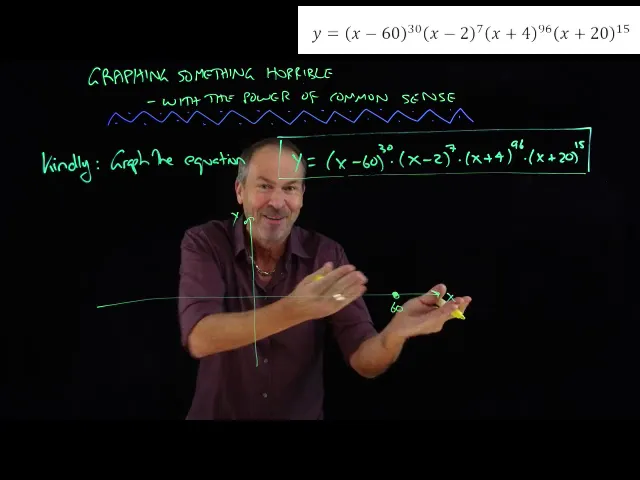 y = (x − 60)³⁰(x − 2)⁷(x + 4)⁹⁶(x + 20)¹⁵
GRAPHING SOMETHING HORRIBLE
- WITH THE POWER OF COMMON SENSE
Kindly: Graph the equation y = (x-60)³⁰·(x-2)⁷·(x+4)⁹⁶·(x+20)¹⁵
y
x
60